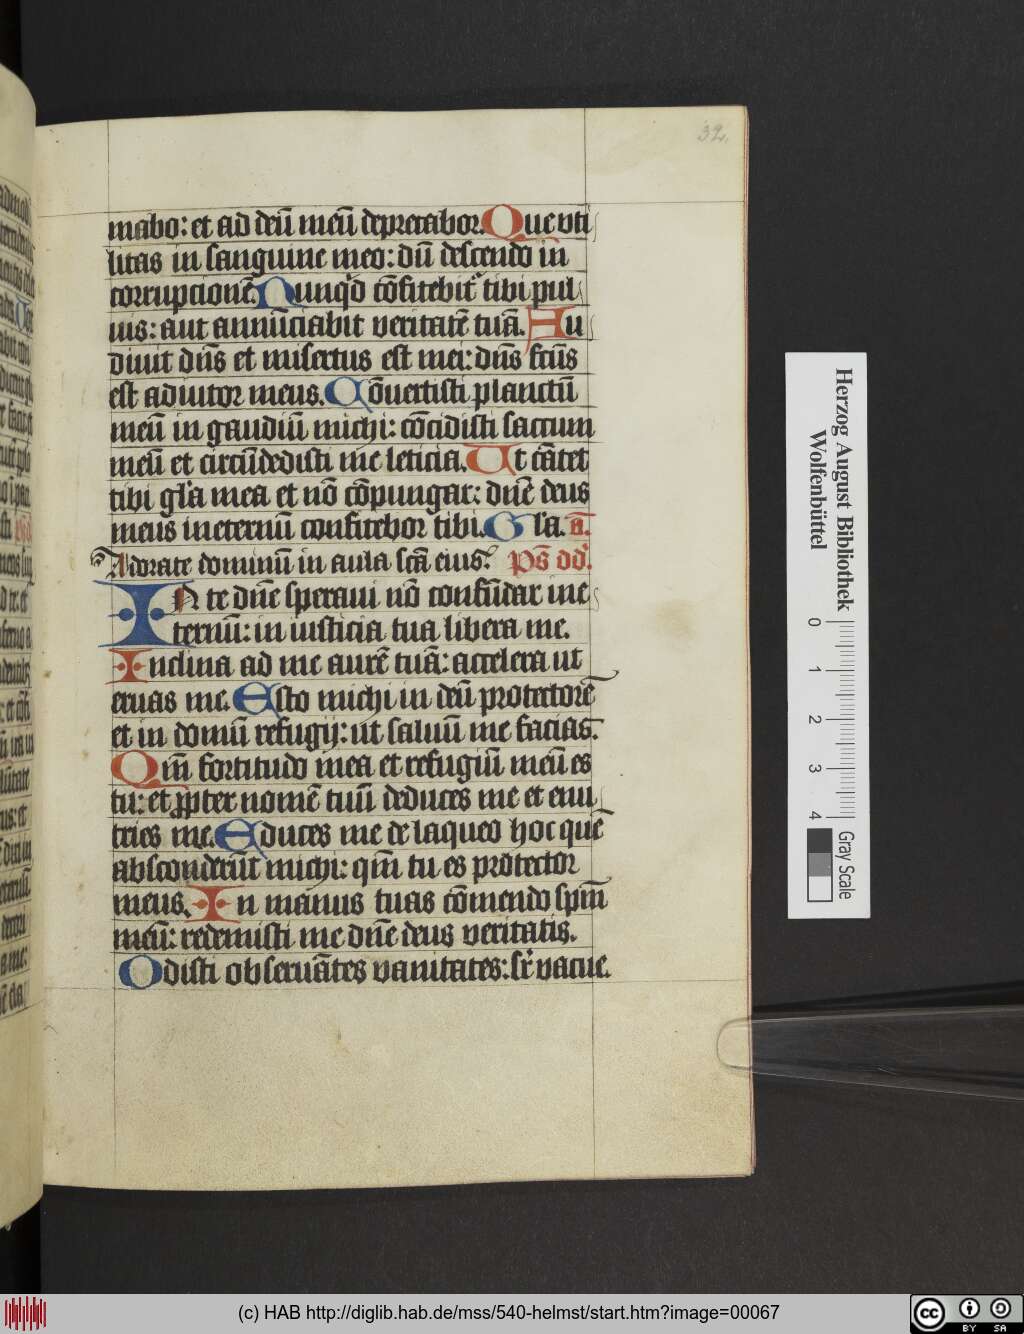 32.
mabo: et ad deū meū deprecabor. Que uti
litas in sanguine meo: dū descendo in
corrupcionē. Nunqͥd cōfitebit᷑ tibi pul
uis: aut annūciabit veritatē tuā. Au
diuit dn̄s et misertus est mei: dn̄s fc̄us
est adiutor meus. Cōuertisti planctū
meū in gaudiū michi: cōcidisti saccum
meū et circūdedisti me leticia. Ut cātet
tibi gl̄a mea et nō cōpungar: dn̄e deus
meus ineternū confitebor tibi. Gl̄a. a͞.
Adorate dominū in aula sc̄a eius. Ps̄ dd̄.
IN te dn̄e speraui nō confūdar ine
ternū: in iusticia tua libera me.
Inclina ad me aurē tuā: accelera ut
eruas me. Esto michi in deū protectorē
et in domū refugij: ut saluū me facias.
Qm̄ fortitudo mea et refugiū meū es
tu: et ꝓpter nomē tuū deduces me et enu
tries me. Educes me de laqueo hoc quē
absconderūt michi: qm̄ tu es protector
meus. In manus tuas cōmendo spm̄
meū: redemisti me dn̄e deus veritatis.
Odisti obseruātes vanitates: sr̄ vacue.
Herzog August Bibliothek
Wolfenbüttel
0 1 2 3 4
Gray Scale
(c) HAB http://diglib.hab.de/mss/540-helmst/start.htm?image=00067
cc BY SA